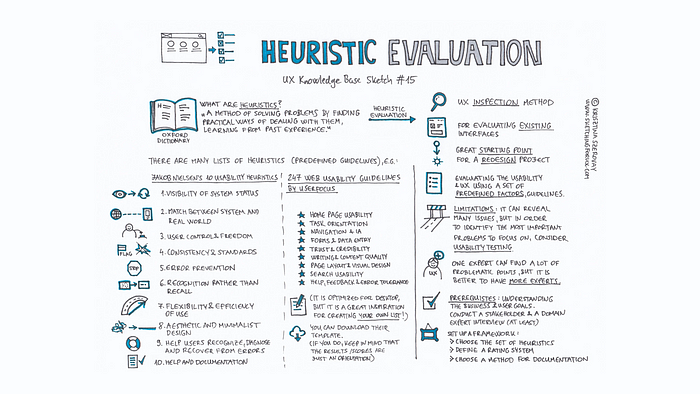 HEURISTIC EVALUATION
UX Knowledge Base Sketch #15
WHAT ARE HEURISTICS?
"A METHOD OF SOLVING PROBLEMS BY FINDING
PRACTICAL WAYS OF DEALING WITH THEM,
LEARNING FROM PAST EXPERIENCE."
OXFORD
DICTIONARY
HEURISTIC
EVALUATION
THERE ARE MANY LISTS OF HEURISTICS (PREDEFINED GUIDELINES), E.G.:
JAKOB NIELSEN'S 10 USABILITY HEURISTICS
1. VISIBILITY OF SYSTEM STATUS
2. MATCH BETWEEN SYSTEM AND
REAL WORLD
3. USER CONTROL & FREEDOM
FLAG
4. CONSISTENCY & STANDARDS
STOP
5. ERROR PREVENTION
6. RECOGNITION RATHER THAN
RECALL
7. FLEXIBILITY & EFFICIENCY
OF USE
8. AESTHETIC AND MINIMALIST
DESIGN
9. HELP USERS RECOGNIZE, DIAGNOSE
AND RECOVER FROM ERRORS
10. HELP AND DOCUMENTATION
247 WEB USABILITY GUIDELINES
BY USERFOCUS
HOME PAGE USABILITY
TASK ORIENTATION
NAVIGATION & IA
FORMS & DATA ENTRY
TRUST & CREDIBILITY
WRITING & CONTENT QUALITY
PAGE LAYOUT & VISUAL DESIGN
SEARCH USABILITY
HELP, FEEDBACK & ERROR TOLERANCE
(IT IS OPTIMIZED FOR DESKTOP,
BUT IT IS A GREAT INSPIRATION
FOR CREATING YOUR OWN LIST!)
YOU CAN DOWNLOAD THEIR
TEMPLATE.
(IF YOU DO, KEEP IN MIND THAT
THE RESULTS/SCORES ARE
JUST AN ORIENTATION)
UX INSPECTION METHOD
FOR EVALUATING EXISTING
INTERFACES
GREAT STARTING POINT
FOR A REDESIGN PROJECT
EVALUATING THE USABILITY
& UX USING A SET OF
PREDEFINED FACTORS, GUIDELINES.
LIMITATIONS: IT CAN REVEAL
MANY ISSUES, BUT IN ORDER
TO IDENTIFY THE MOST IMPORTANT
PROBLEMS TO FOCUS ON, CONSIDER
USABILITY TESTING
UX
ONE EXPERT CAN FIND A LOT OF
PROBLEMATIC POINTS, BUT IT IS
BETTER TO HAVE MORE EXPERTS.
PREREQUISITES: UNDERSTANDING
THE BUSINESS & USER GOALS.
CONDUCT A STAKEHOLDER & A DOMAIN
EXPERT INTERVIEW (AT LEAST)
SET UP A FRAMEWORK:
> CHOOSE THE SET OF HEURISTICS
> DEFINE A RATING SYSTEM
> CHOOSE A METHOD FOR DOCUMENTATION
© KRISZTINA SZEROVAY
WWW.SKETCHINGFORUX.COM